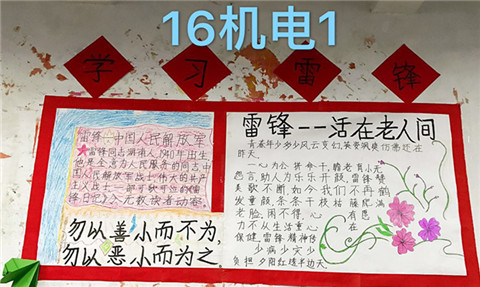 16机电1
学习雷锋
雷锋,中国人民解放军
雷锋同志湖南人1940年出生
他是全心为人民服务的同志中
国人民解放军战士伟大的共产
主义战士一部可歌可泣的《雷锋
日记》令无数读者动容
勿以善小而不为,
勿以恶小而为之
雷锋——活在老人间
青春年少多少风云变幻,英姿飒爽仿佛还在
昨天,
一心为公 拼命干,赡老育小无
怨言,助人为乐乐于
美歌不断 如今我们不再鹤
发童颜,条条干枝枯藤 爬满
老脸,闲不得心 有恩
力不从生活重心 在
保健,雷锋精神传
少病少灾少
负担 夕阳红遍半边天